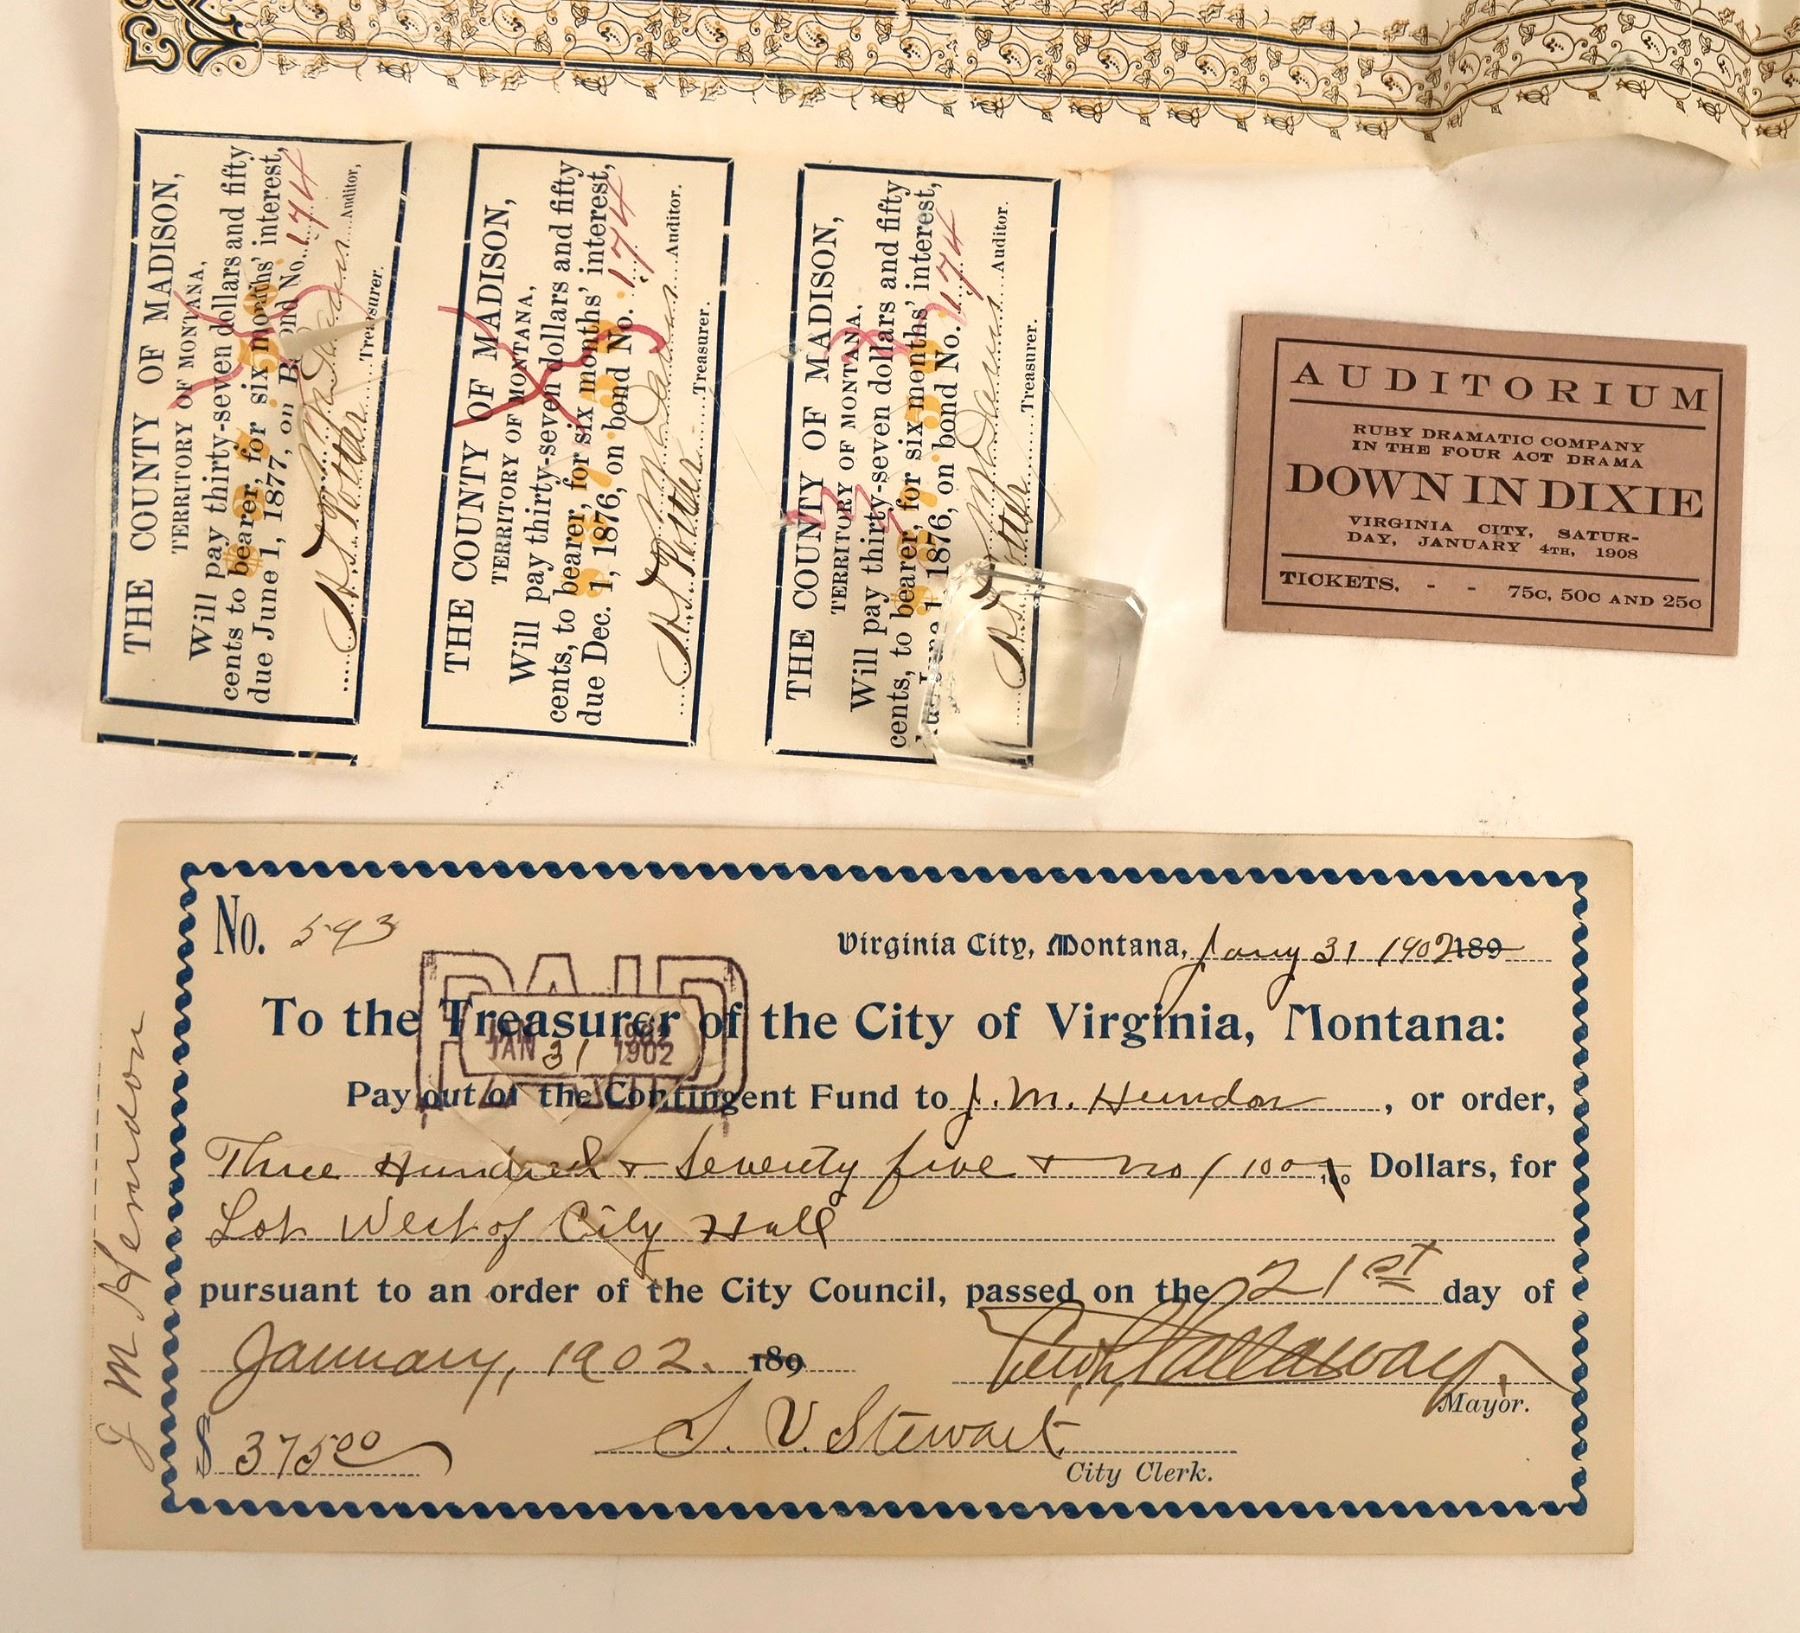 THE COUNTY OF MADISON,
TERRITORY OF MONTANA,
Will pay thirty-seven dollars and fifty
cents to bearer, for six months' interest,
due June 1, 1877, on Bond No. 174
Auditor,
H. S. Potter Treasurer.
THE COUNTY OF MADISON,
TERRITORY OF MONTANA,
Will pay thirty-seven dollars and fifty
cents, to bearer, for six months' interest,
due Dec. 1, 1876, on bond No. 174
Auditor.
H. S. Potter Treasurer.
THE COUNTY OF MADISON,
TERRITORY OF MONTANA.
Will pay thirty-seven dollars and fifty
cents, to bearer, for six months' interest,
due June 1 1876, on bond No. 174
Auditor.
H. S. Potter Treasurer.
AUDITORIUM
RUBY DRAMATIC COMPANY
IN THE FOUR ACT DRAMA
DOWN IN DIXIE
VIRGINIA CITY, SATUR-
DAY, JANUARY 4TH, 1908
TICKETS, - - 75c, 50c AND 25c
No. 593
Virginia City, Montana, Jany 31 1902 189
To the Treasurer of the City of Virginia, Montana:
PAID
JAN 31 1902
Pay out of the Contingent Fund to J. M. Herndon, or order,
Three Hundred & Seventy five & no/100 100 Dollars, for
Lot West of City Hall
pursuant to an order of the City Council, passed on the 21st day of
January, 1902. 189
Callaway
Mayor.
$ 375 00
S. V. Stewart
City Clerk.
J M Herndon